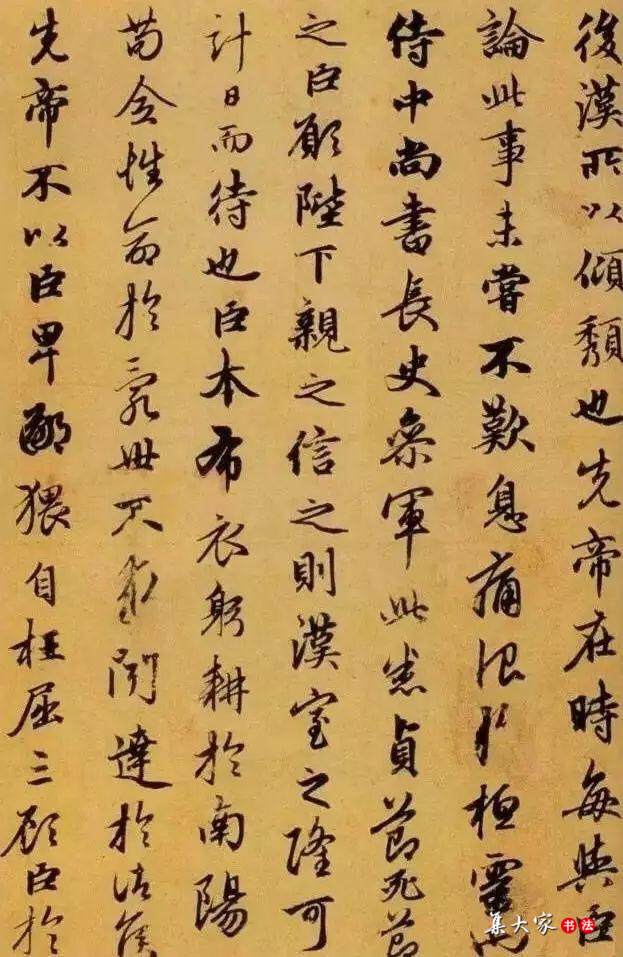 後漢所以傾頹也先帝在時每與臣
論此事未嘗不歎息痛恨於桓靈
侍中尚書長史參軍此悉貞節死節
之臣願陛下親之信之則漢室之隆可
計日而待也臣本布衣躬耕於南陽
苟全性命於亂世不求聞達於諸侯
先帝不以臣卑鄙猥自枉屈三顧臣於
集大家 书法